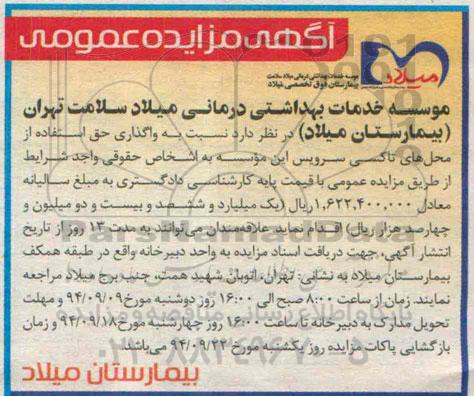 آگهی مزایده عمومی
میلاد
موسسه خدمات بهداشتی درمانی میلاد سلامت
بیمارستان فوق تخصصی میلاد
موسسه خدمات بهداشتی درمانی میلاد سلامت تهران
(بیمارستان میلاد) در نظر دارد نسبت به واگذاری حق استفاده از
محل‌های تاکسی سرویس این مؤسسه به اشخاص حقوقی واجد شرایط
از طریق مزایده عمومی با قیمت پایه کارشناسی دادگستری به مبلغ سالیانه
معادل ۱,۶۲۲,۴۰۰,۰۰۰ ریال (یک میلیارد و ششصد و بیست و دو میلیون و
چهارصد هزار ریال) اقدام نماید علاقه‌مندان می‌توانند به مدت ۱۳ روز از تاریخ
انتشار آگهی، جهت دریافت اسناد مزایده به واحد دبیرخانه واقع در طبقه همکف
بیمارستان میلاد به نشانی: تهران، اتوبان شهید همت، جنب برج میلاد مراجعه
نمایند. زمان از ساعت ۸:۰۰ صبح الی ۱۶:۰۰ روز دوشنبه مورخ ۹۴/۰۹/۰۹ و مهلت
تحویل مدارک به دبیرخانه تا ساعت ۱۶:۰۰ روز چهارشنبه مورخ ۹۴/۰۹/۱۸ و زمان
بازگشایی پاکات مزایده روز یکشنبه مورخ ۹۴/۰۹/۲۲ می‌باشد.
بیمارستان میلاد